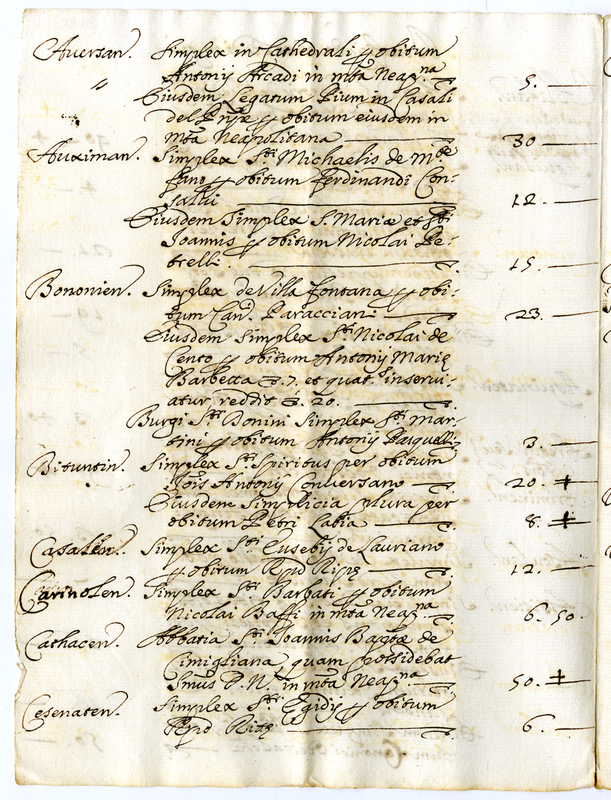 Aversan. Simplex in Cathedrali p obitum
Antonij Arcadi in mta Neapna 5.
〃 Eiusdem Legatum Pium in Casali
del p obitum eiusdem in
mta Neapolitana 30
Auximan. Simplex Sti Michaelis de mte
fano p obitum Ferdinandi Con-
salui 12.
Eiusdem Simplex S. Mariæ et Sti
Joannis p obitum Nicolai Pe-
trelli 15.
Bononien. Simplex de Villa fontana p obi-
tum Can. Paracciani 23.
Eiusdem Simplex Sti Nicolai de
Cento p obitum Antonij Marię
Barbetta 7. et quat. inservi-
atur reddit 20.
Burgi Sti Donini Simplex Sti Mar-
tini p obitum Antonij Pasquelli 3.
Bituntin. Simplex Sti Spiritus per obitum
Jois Antonij Conversano 20. ‡
Eiusdem Simplicia plura per
obitum Petri Labia 8. ‡
Casalen. Simplex Sti Eusebij de Lauriano
p obitum Rpd Ripę 12.
Carinolen. Simplex Sti Barbati p obitum
Nicolai Baffi in mta Neapna 6. 50.
Cathacen. Abbatia Sti Joannis Baptæ de
Cimigliana quam possidebat
Smus D. N. in mta Neapna 50. ‡
Cesenaten. Simplex Sti Egidij p obitum
Rpd 6.